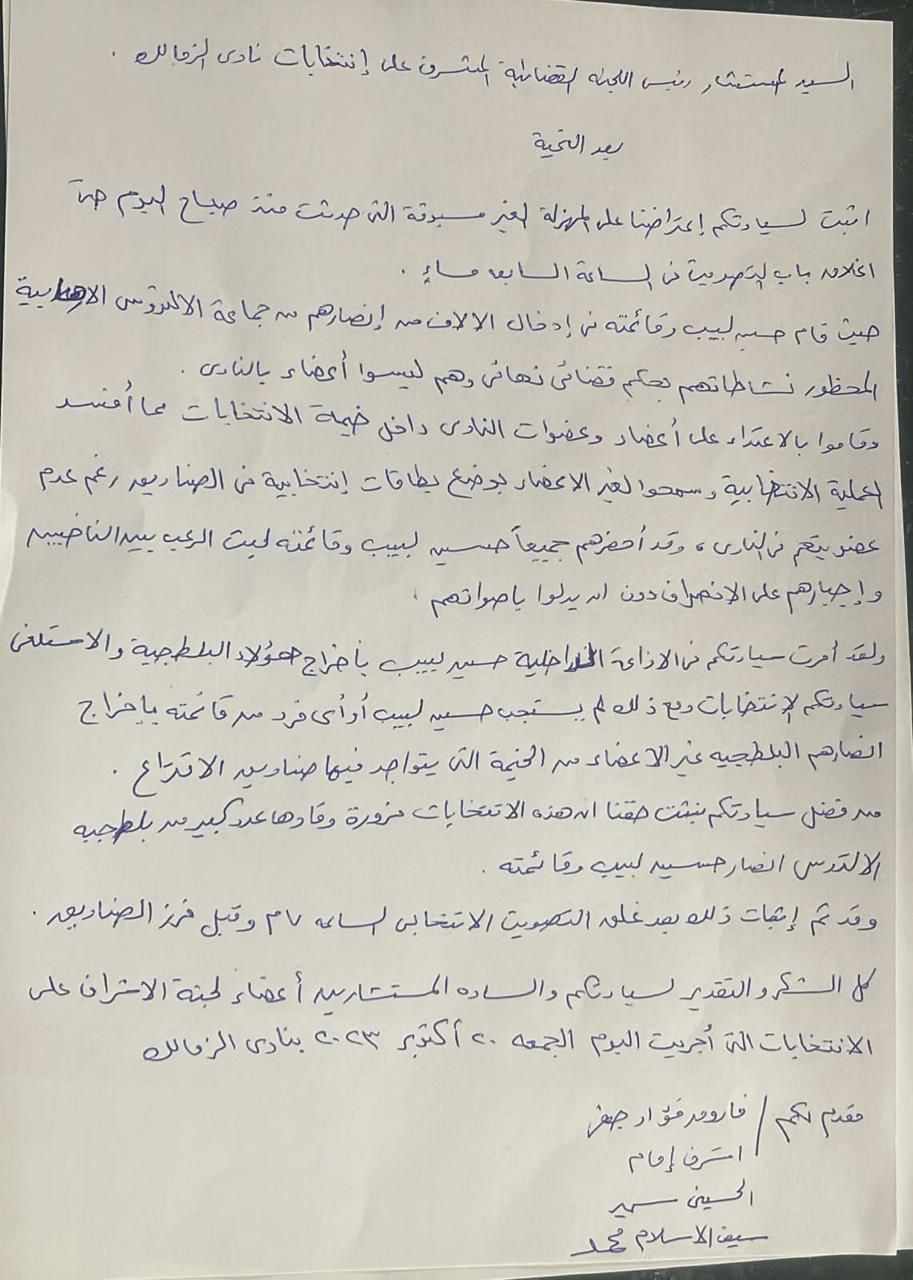 السيد المستشار رئيس اللجنه القضائية المشرف على إنتخابات نادى الزمالك .
بعد التحية
اثبت لسيادتكم إعتراضنا على المهزلة الغير مسبوقة التى حدثت منذ صباح اليوم حتى
اغلاق باب التصويت فى الساعة السابعه مساءٍ .
حيث قام حسين لبيب وقائمته فى إدخال الالاف من إنصارهم من جماعة الالتروس الارهابية
المحظور نشاطاتهم بحكم قضائى نهائى وهم ليسوا أعضاء بالنادى .
وقاموا بالاعتداء على أعضاء وعضوات النادى داخل خيمة الانتخابات مما أفسد
العملية الانتخابية وسمحوا لغير الاعضاء بوضع بطاقات إنتخابية فى الصناديق رغم عدم
عضويتهم فى النادى ، وقد أحضرهم جميعاً حسين لبيب وقائمته لبث الرعب بين الناخبين
وإجبارهم على الانصراف دون ان يدلوا باصواتهم .
ولقد أمرت سيادتكم فى الاذاعة الداخلية حسين لبيب بأخراج هؤلاء البلطجية والا ستلغى
سيادتكم الإنتخابات ومع ذلك لم يستجب حسين لبيب أو أى فرد من قائمته بإخراج
انصارهم البلطجيه غير الاعضاء من الخيمة التى يتواجد فيها صناديق الاقتراع .
من فضل سيادتكم نثبت حقنا ان هذه الانتخابات مزورة وقادها عدد كبير من بلطجيه
الالتروس انصار حسين لبيب وقائمته .
وقد تم إثبات ذلك بعد غلق التصويت الانتخابى لساعه ٧م وقبل فرز الصناديق .
كل الشكر والتقدير لسيادتكم والساده المستشارين أعضاء لجنة الاشراف على
الانتخابات التى أجريت اليوم الجمعه ٢٠ أكتوبر ٢٠٢٣ بنادى الزمالك
مقدم لكم / فاروق فؤاد جعفر
اشرف إمام
الحسينى سمير
سيف الاسلام محمد